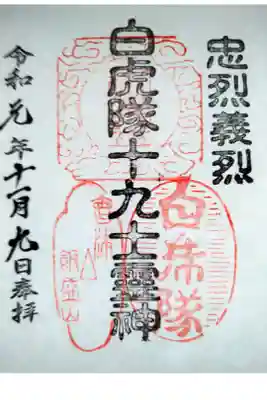 忠烈義烈
白虎隊十九士霊神
令和元年十一月九日奉拝
白虎隊
飯盛山